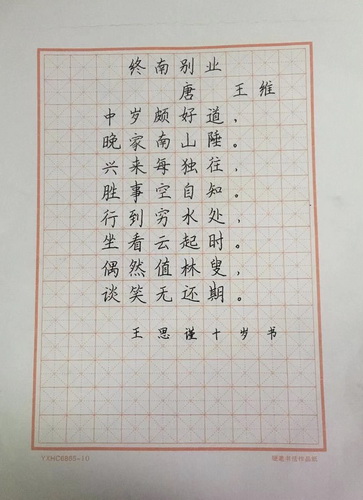 终南别业
唐 王维
中岁颇好道，
晚家南山陲。
兴来每独往，
胜事空自知。
行到穷水处，
坐看云起时。
偶然值林叟，
谈笑无还期。
王思谨十岁书
硬笔书法作品纸